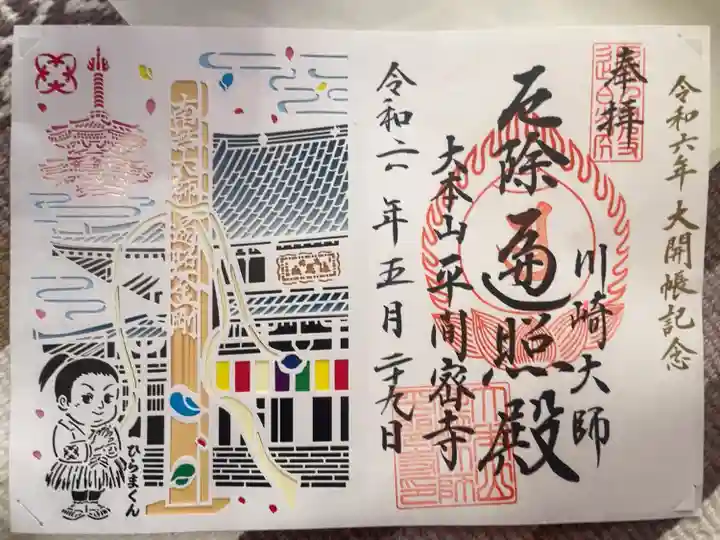 令和六年 大開帳記念
奉拝
川崎大師
厄除遍照殿
大本山平間密寺
令和六年五月二十九日
南無大師遍照金剛
ひらまくん